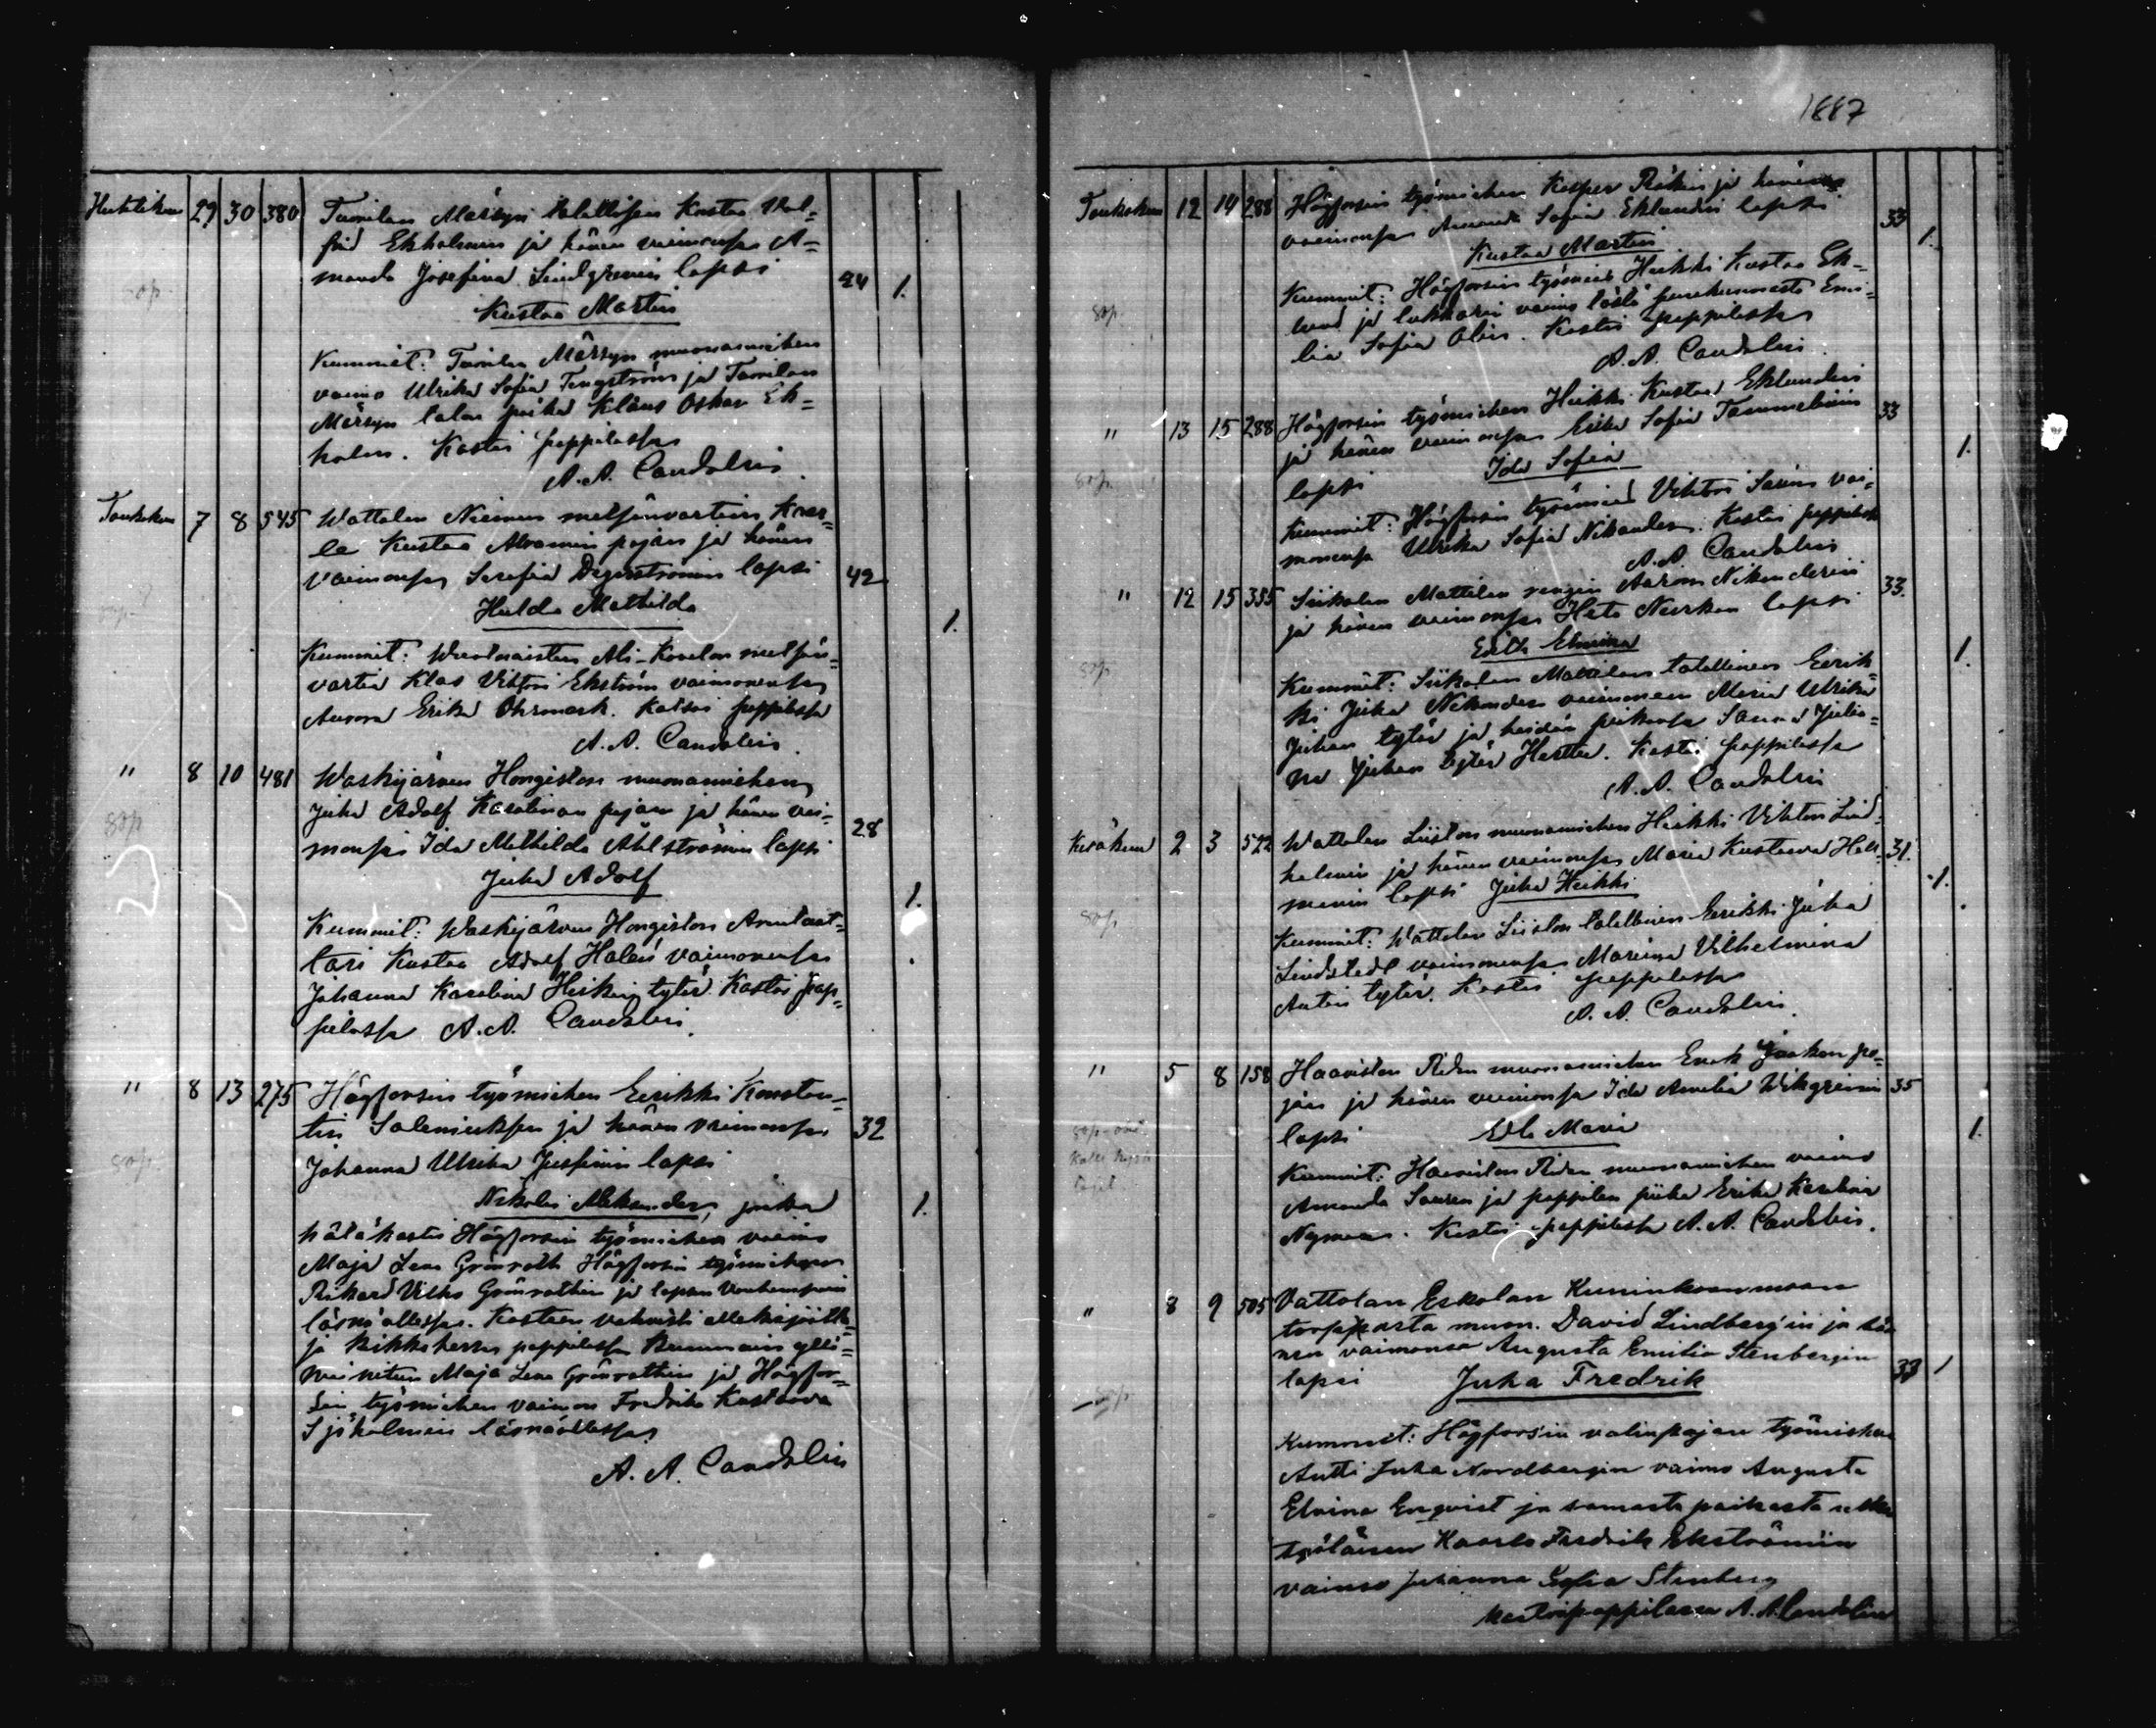 Huhtikuu 29 30 380 Tuorilan Märsyn talollisen Kustaa Wal=
frid Ekholmin ja hänen vaimonsa A=
manda Josefina Lindgrenin lapsi 24 1.
Kustaa Martin
Kummit: Tuorilan Märsyn muonamiehen
vaimo Ulrika Sofia Tengström ja Tuorilan
Märsyn talon poika Klaus Oskar Ek=
holm. Kastoi pappilassa
A. A. Candolin
Toukokuu 7 8 545 Wattolan Niemen metsänvartian Kaar=
le Kustaa Abramin pojan ja hänen
vaimonsa Serafia Degerströmin lapsi 42
Hulda Mathilda
1.
Kummit: Ali-Kovelan metsän=
vartia Klas Viktor Ekström vaimonensa
Aurora Erika Öhrmark. Kastoi pappilassa
A. A. Candolin.
" 8 10 481 Waskijärven Hongiston muonamiehen
Juha Adolf Karolinan pojan ja hänen vai=
monsa Ida Mathilda Åhlströmin lapsi 28
Juha Adolf
1.
Kummit: Waskijärven Hongiston
Kustaa Adolf Halén vaimonensa
Johanna Karolina Heikin tytär. Kastoi pap=
pilassa A. A. Candolin.
" 8 13 275 Högforsin työmiehen Eerikki Konstan=
tin Saleniuksen ja hänen vaimonsa 32
Johanna Ulrika Jusfinin lapsi
Nikolai Aleksander, jonka 1.
hätäkastoi Högforsin työmiehen vaimo
Maja Lena Grönroth Högforsin työmiehen
Rikard Vilho Grönrothin ja lapsen vanhempain
läsnäollessa. Kasteen vahvisti allekirjoitta=
ja kirkkoherra pappilassa
Maja Lena Grönrothin ja Högfor=
sin työmiehen vaimon Fredrika Kustaava
Sjöholmin läsnäollessa
A. A. Candolin
1887
Toukokuu 12 14 288 Högforsin työmiehen Kasper ja hänen
vaimonsa Amanda Sofia Eklundin lapsi 33
1.
Kustaa Martin
Kummit: Högforsin työmies Heikki Kustaa Ek=
lund ja lukkarin vaimo tästä Emi=
lia Sofia Olin. Kastoi pappilassa
A. A. Candolin.
" 13 15 288 Högforsin työmiehen Heikki Kustaa Eklundin
ja hänen vaimonsa Erika Sofia Tammelinin 33
1.
lapsi Ida Sofia
Kummit: Högforsin työmies Viktor vai=
monensa Ulrika Sofia Nikander. Kastoi pappilassa
A. A. Candolin
" 12 15 355 Siikalan Mattilan rengin Aaron Nikanderin
ja hänen vaimonsa lapsi 33.
Edith Elmina
1.
Kummit: Siikalan Mattilan talollinen Eerik=
ki Juha Nikander vaimoneen Maria Ulrika
Juhan tytär ja heidän piikansa Sanna Julia=
na Juhan tytär. Kastoi pappilassa
A. A. Candolin
Kesäkuu 2 3 522 Wattolan Liiston muonamiehen Heikki Viktor Lind=
holmin ja hänen vaimonsa Maria Kustaava Hell= 31.
manin lapsi Juha Heikki
1.
Kummit: Wattolan Liiston talollinen Eerikki Juha
Lindstedt vaimonensa Mariina Vilhelmina
Antin tytär. Kastoi pappilassa
A. A. Candolin.
" 5 8 158 Haaviston muonamiehen Enok Jaakon po=
jan ja hänen vaimonsa Ida Amalia Wikgrenin 35
lapsi Mari
1.
Kummit: Haaviston muonamiehen vaimo
Amanda ja pappilan piika Erika Karolina
Nyman. Kastoi pappilassa A. A. Candolin.
" 8 9 505 Vattolan Eskolan Kuninkaanmaan
torpasta muon. David Lindbergin ja hä=
nen vaimonsa Augusta Emilia Stenbergin
lapsi Juha Fredrik 33 1
Kummit: Högforsin valinpajan työmiehen
Antti Juha Nordbergin vaimo Augusta
Elviina Enqvist ja samasta paikasta
työläisen Kaarlo Fredrik Ekströmin
vaimo Juhanna Sofia Stenberg
Kastoi pappilassa A. A. Candolin